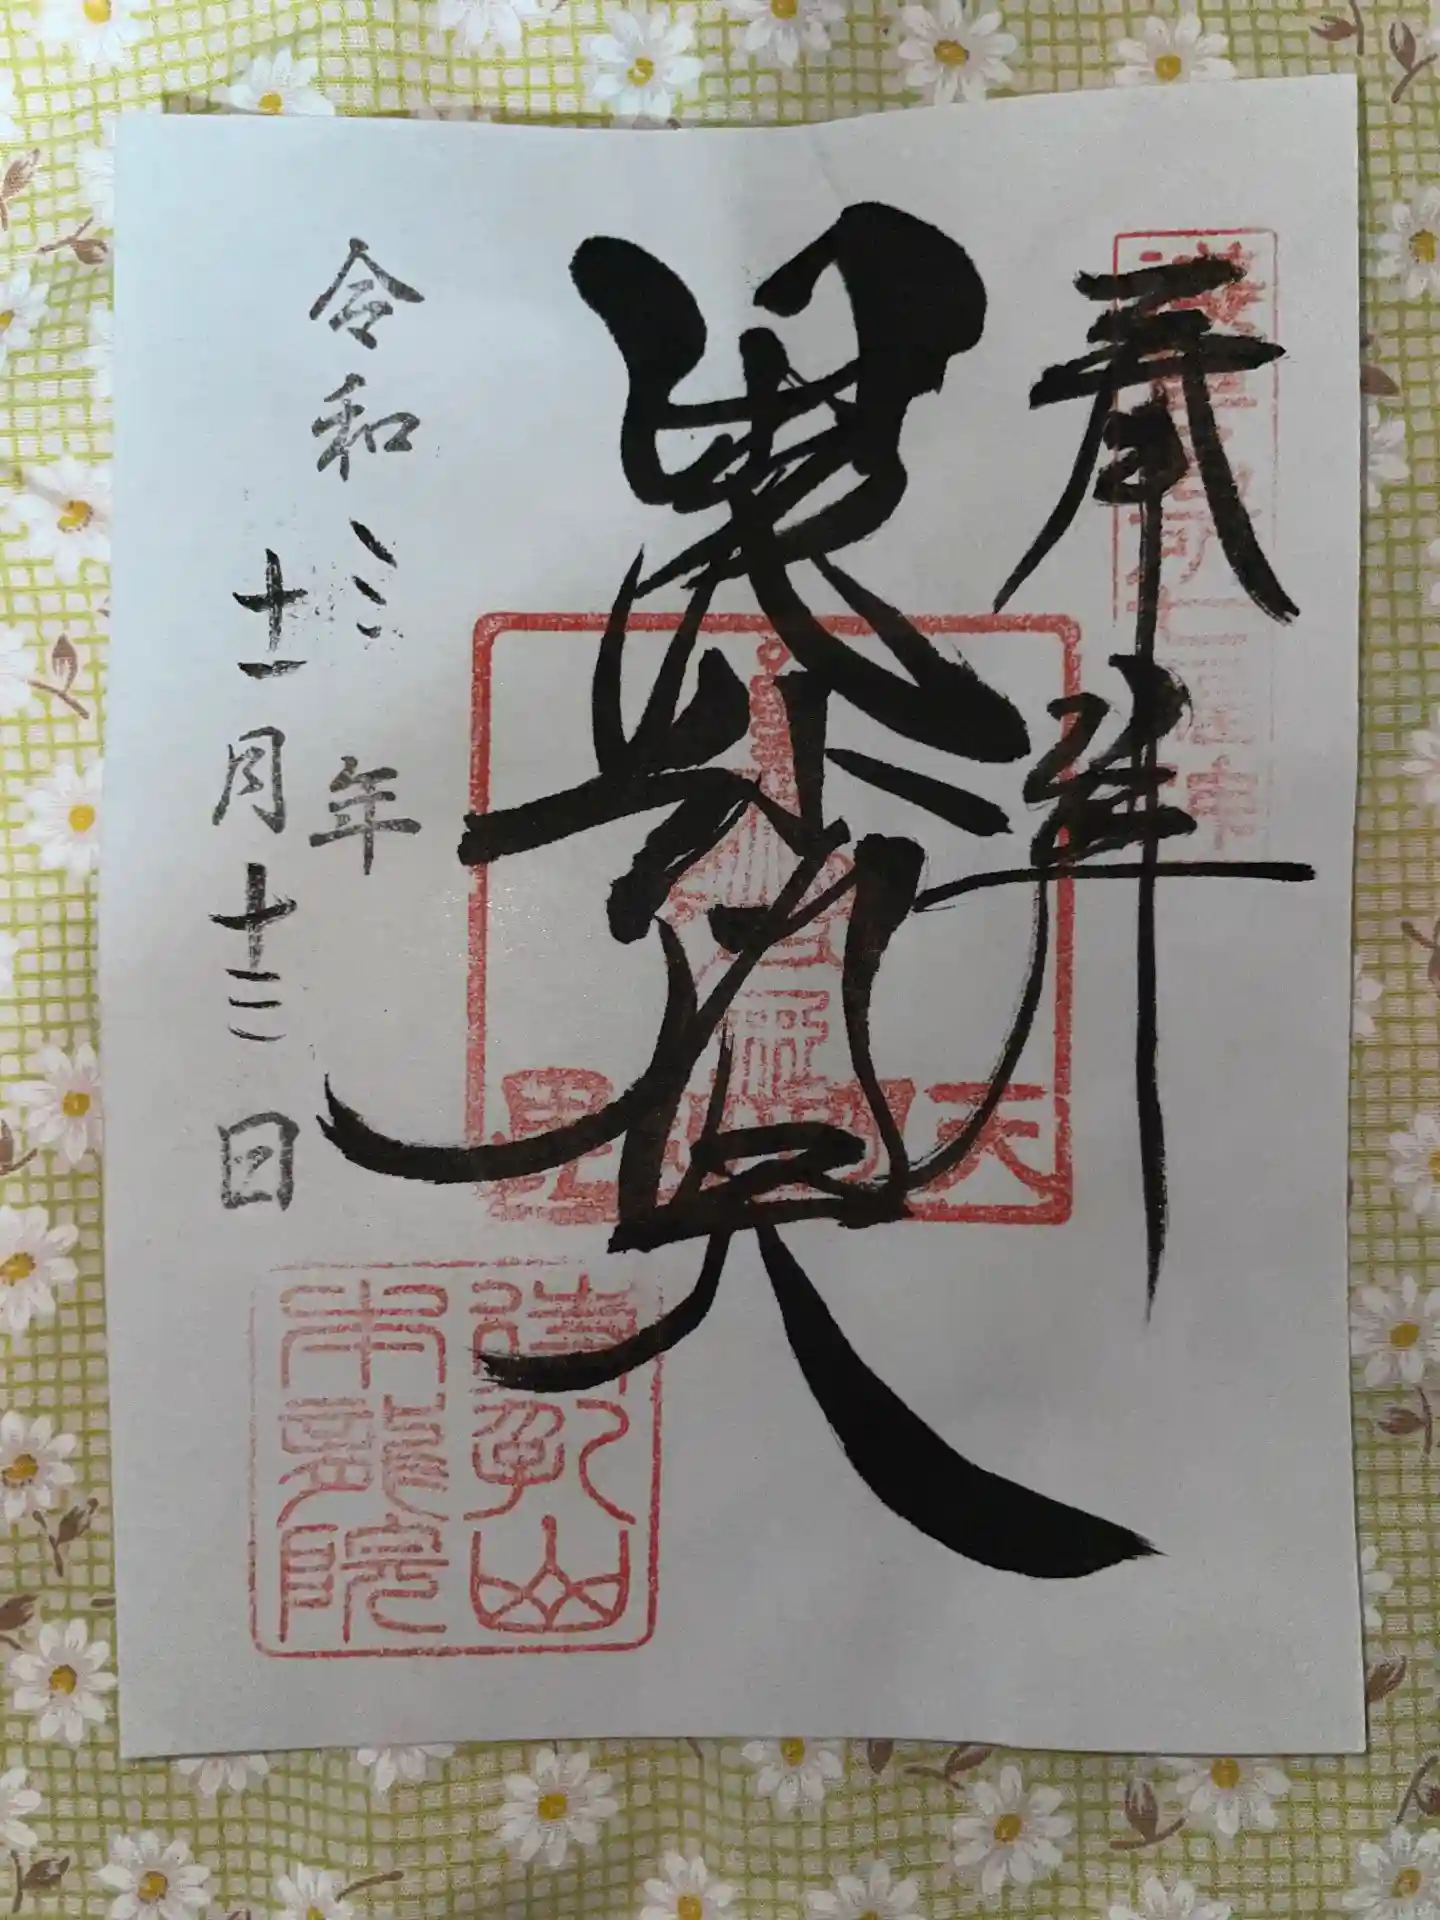 奉拝
毘沙門天
毘沙門天
令和三年
十一月十三日
待乳山
本龍院